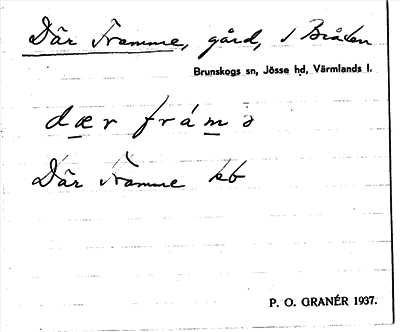 Där Framme, gård, i Bråten
Brunskogs sn, Jösse hd, Värmlands l.
dær frámə
Där Framme kb
P. O. GRANÉR 1937.